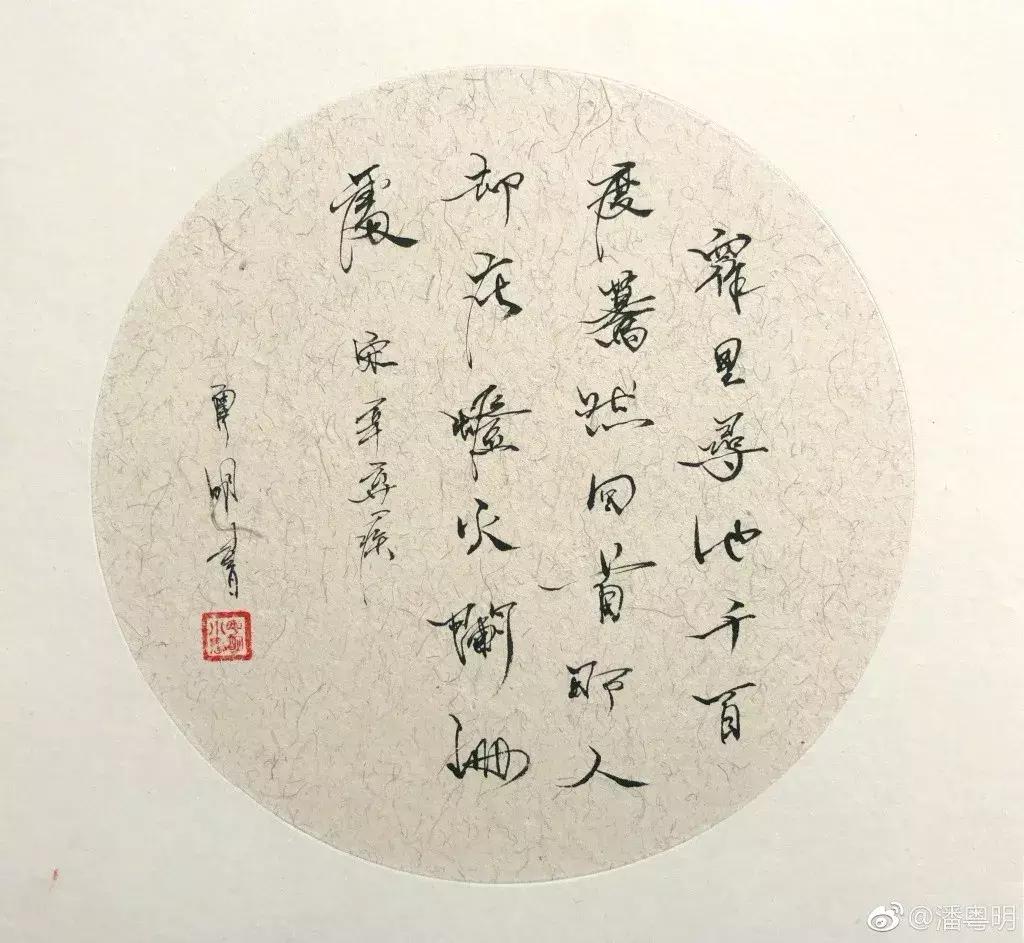 眾里尋他千百
度驀然回首那人
却在燈火闌珊
處
宋辛棄疾
粤明書
@潘粤明